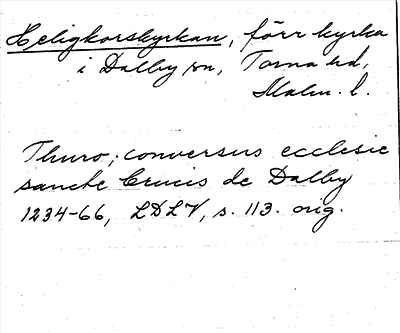 Heligkorskyrkan, förr kyrka
i Dalby sn, Torna hd,
Malm. l.
Thuro, conversus ecclesie
sancte Crucis de Dalby
1234-66, LDLV, s. 113. orig.